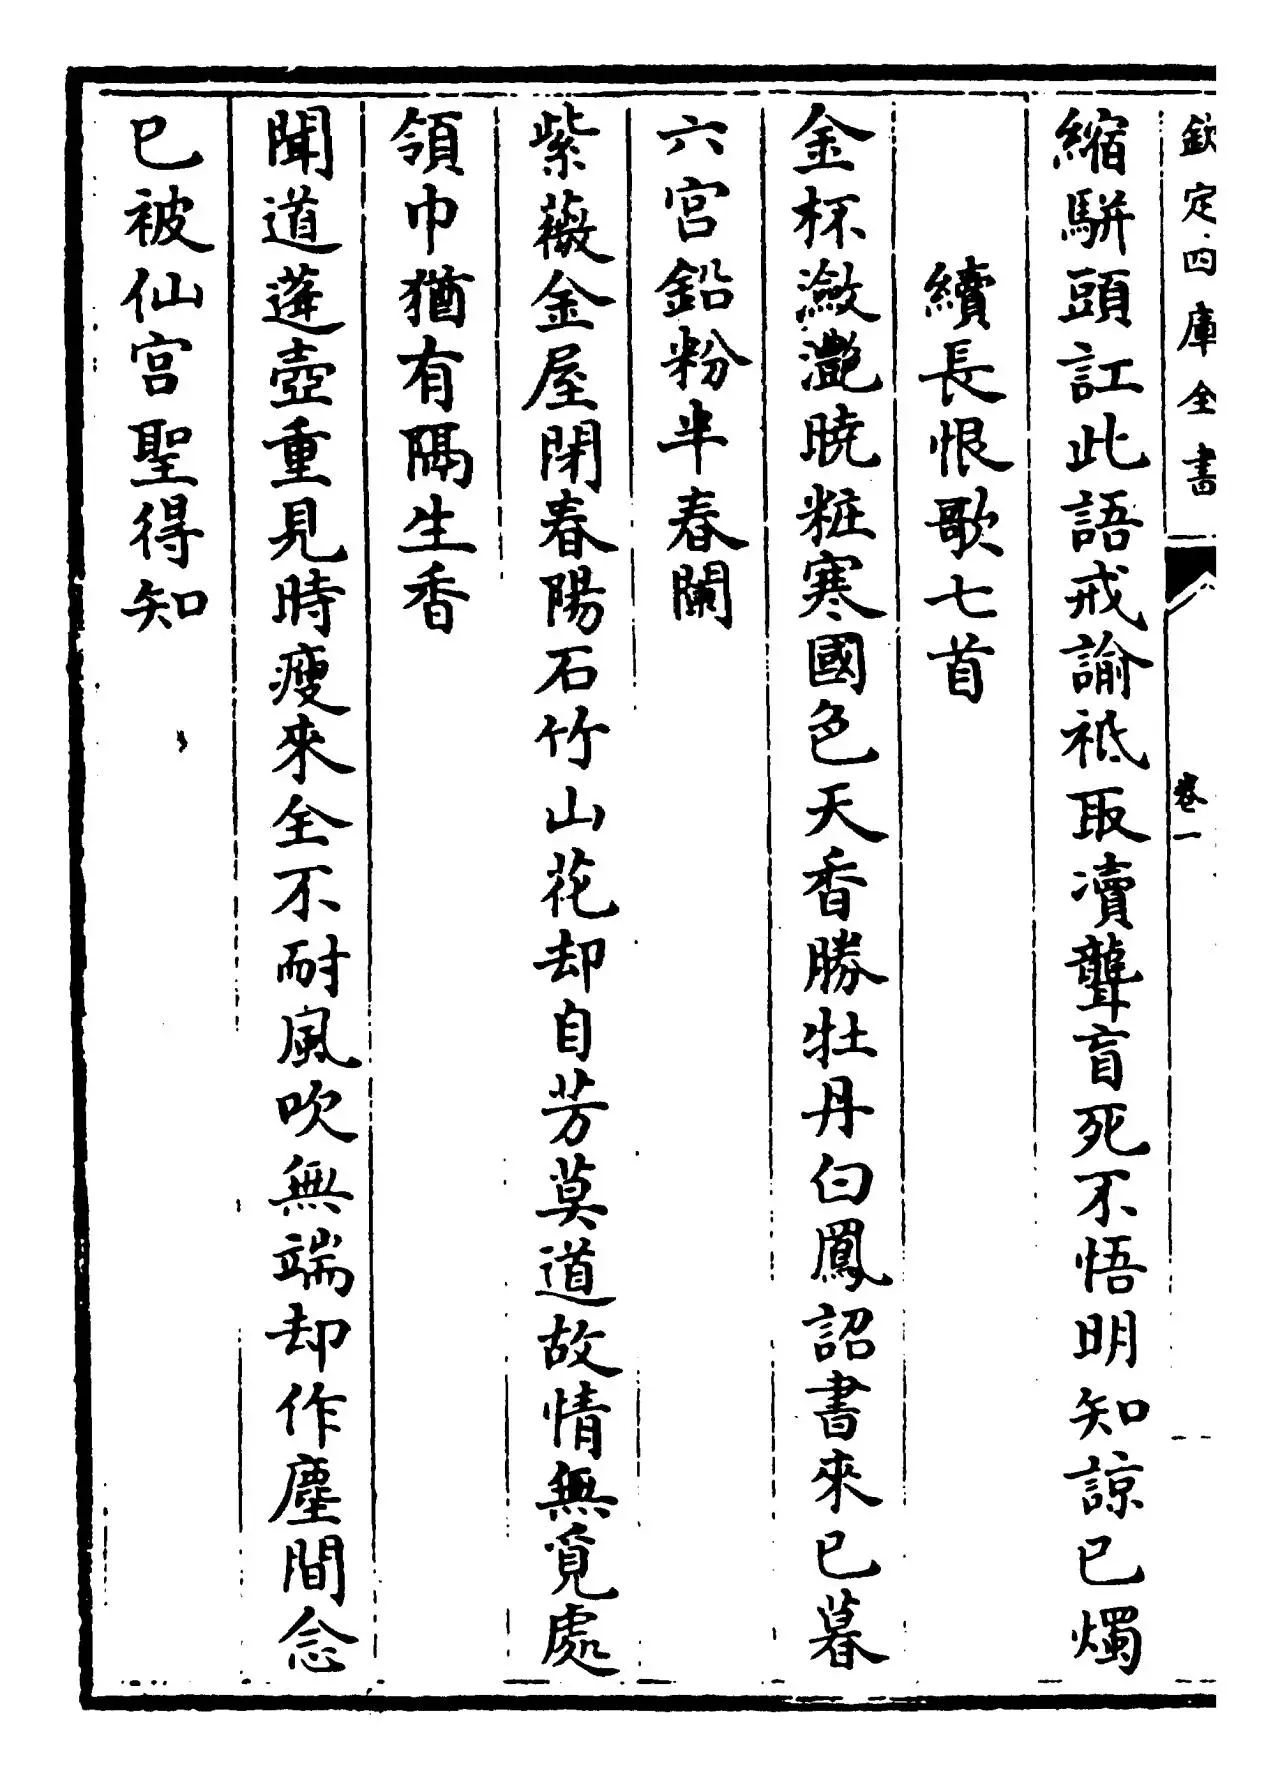 欽定四庫全書
卷一
縮駢頭訌此語戒諭祗取瀆聾盲死不悟明知諒已燭
續長恨歌七首
金杯瀲灧曉粧寒國色天香勝牡丹白鳳詔書來已暮
六宮鉛粉半春闌
紫薇金屋閉春陽石竹山花却自芳莫道故情無覓處
領巾猶有隔生香
聞道蓬壺重見時瘦來全不耐風吹無端却作塵間念
已被仙宮聖得知